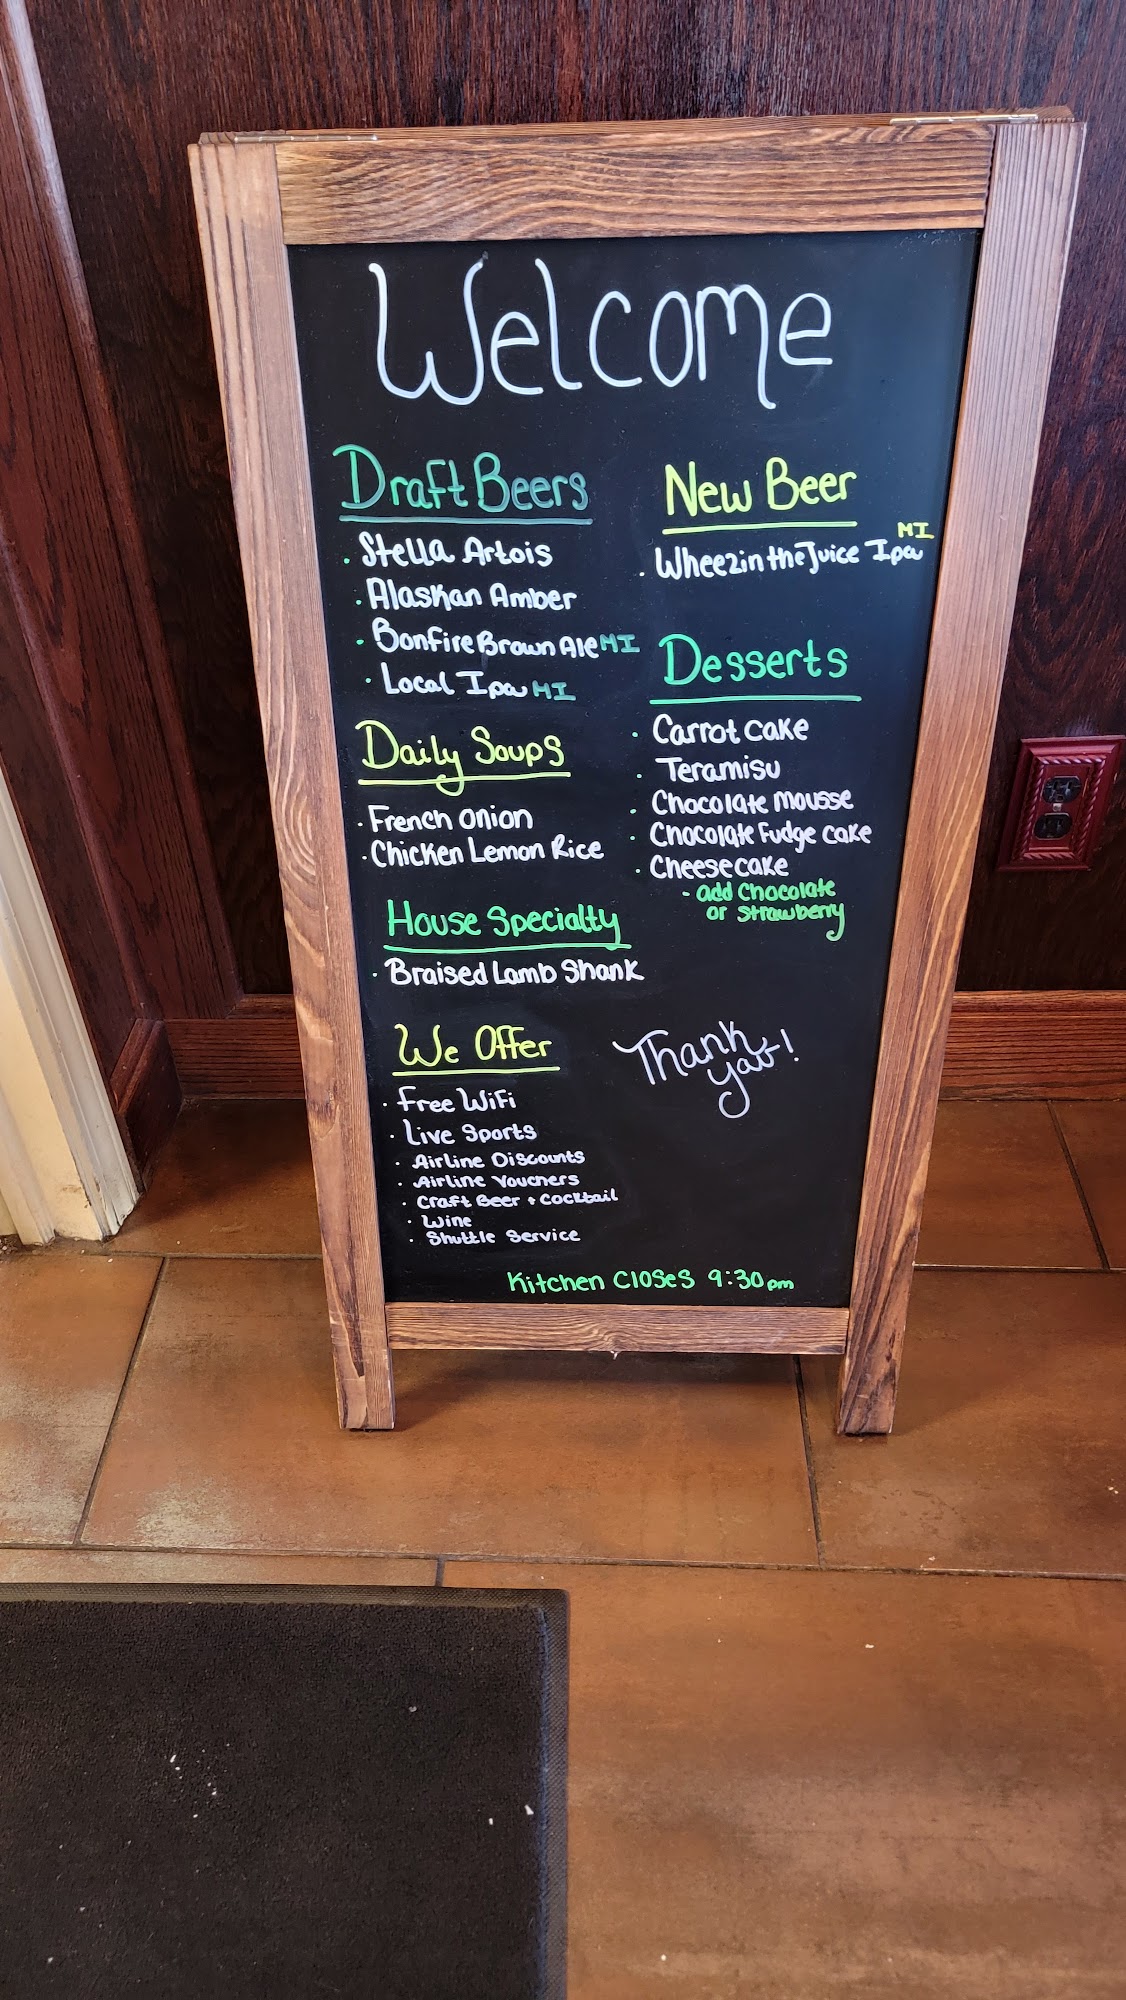 Welcome
Draft Beers
· Stella Artois
· Alaskan Amber
· Bonfire Brown Ale MI
· Local Ipa MI
Daily Soups
· French Onion
· Chicken Lemon Rice
House Specialty
· Braised Lamb Shank
We Offer
· Free WiFi
· Live Sports
· Airline Discounts
· Airline Vouchers
· Craft Beer + Cocktail
· Wine
· Shuttle Service
New Beer
MI
· Wheezin the Juice Ipa
Desserts
· Carrot Cake
· Teramisu
· Chocolate Mousse
· Chocolate Fudge Cake
· Cheesecake
- add Chocolate
or Strawberry
Thank
Kitchen Closes 9:30pm